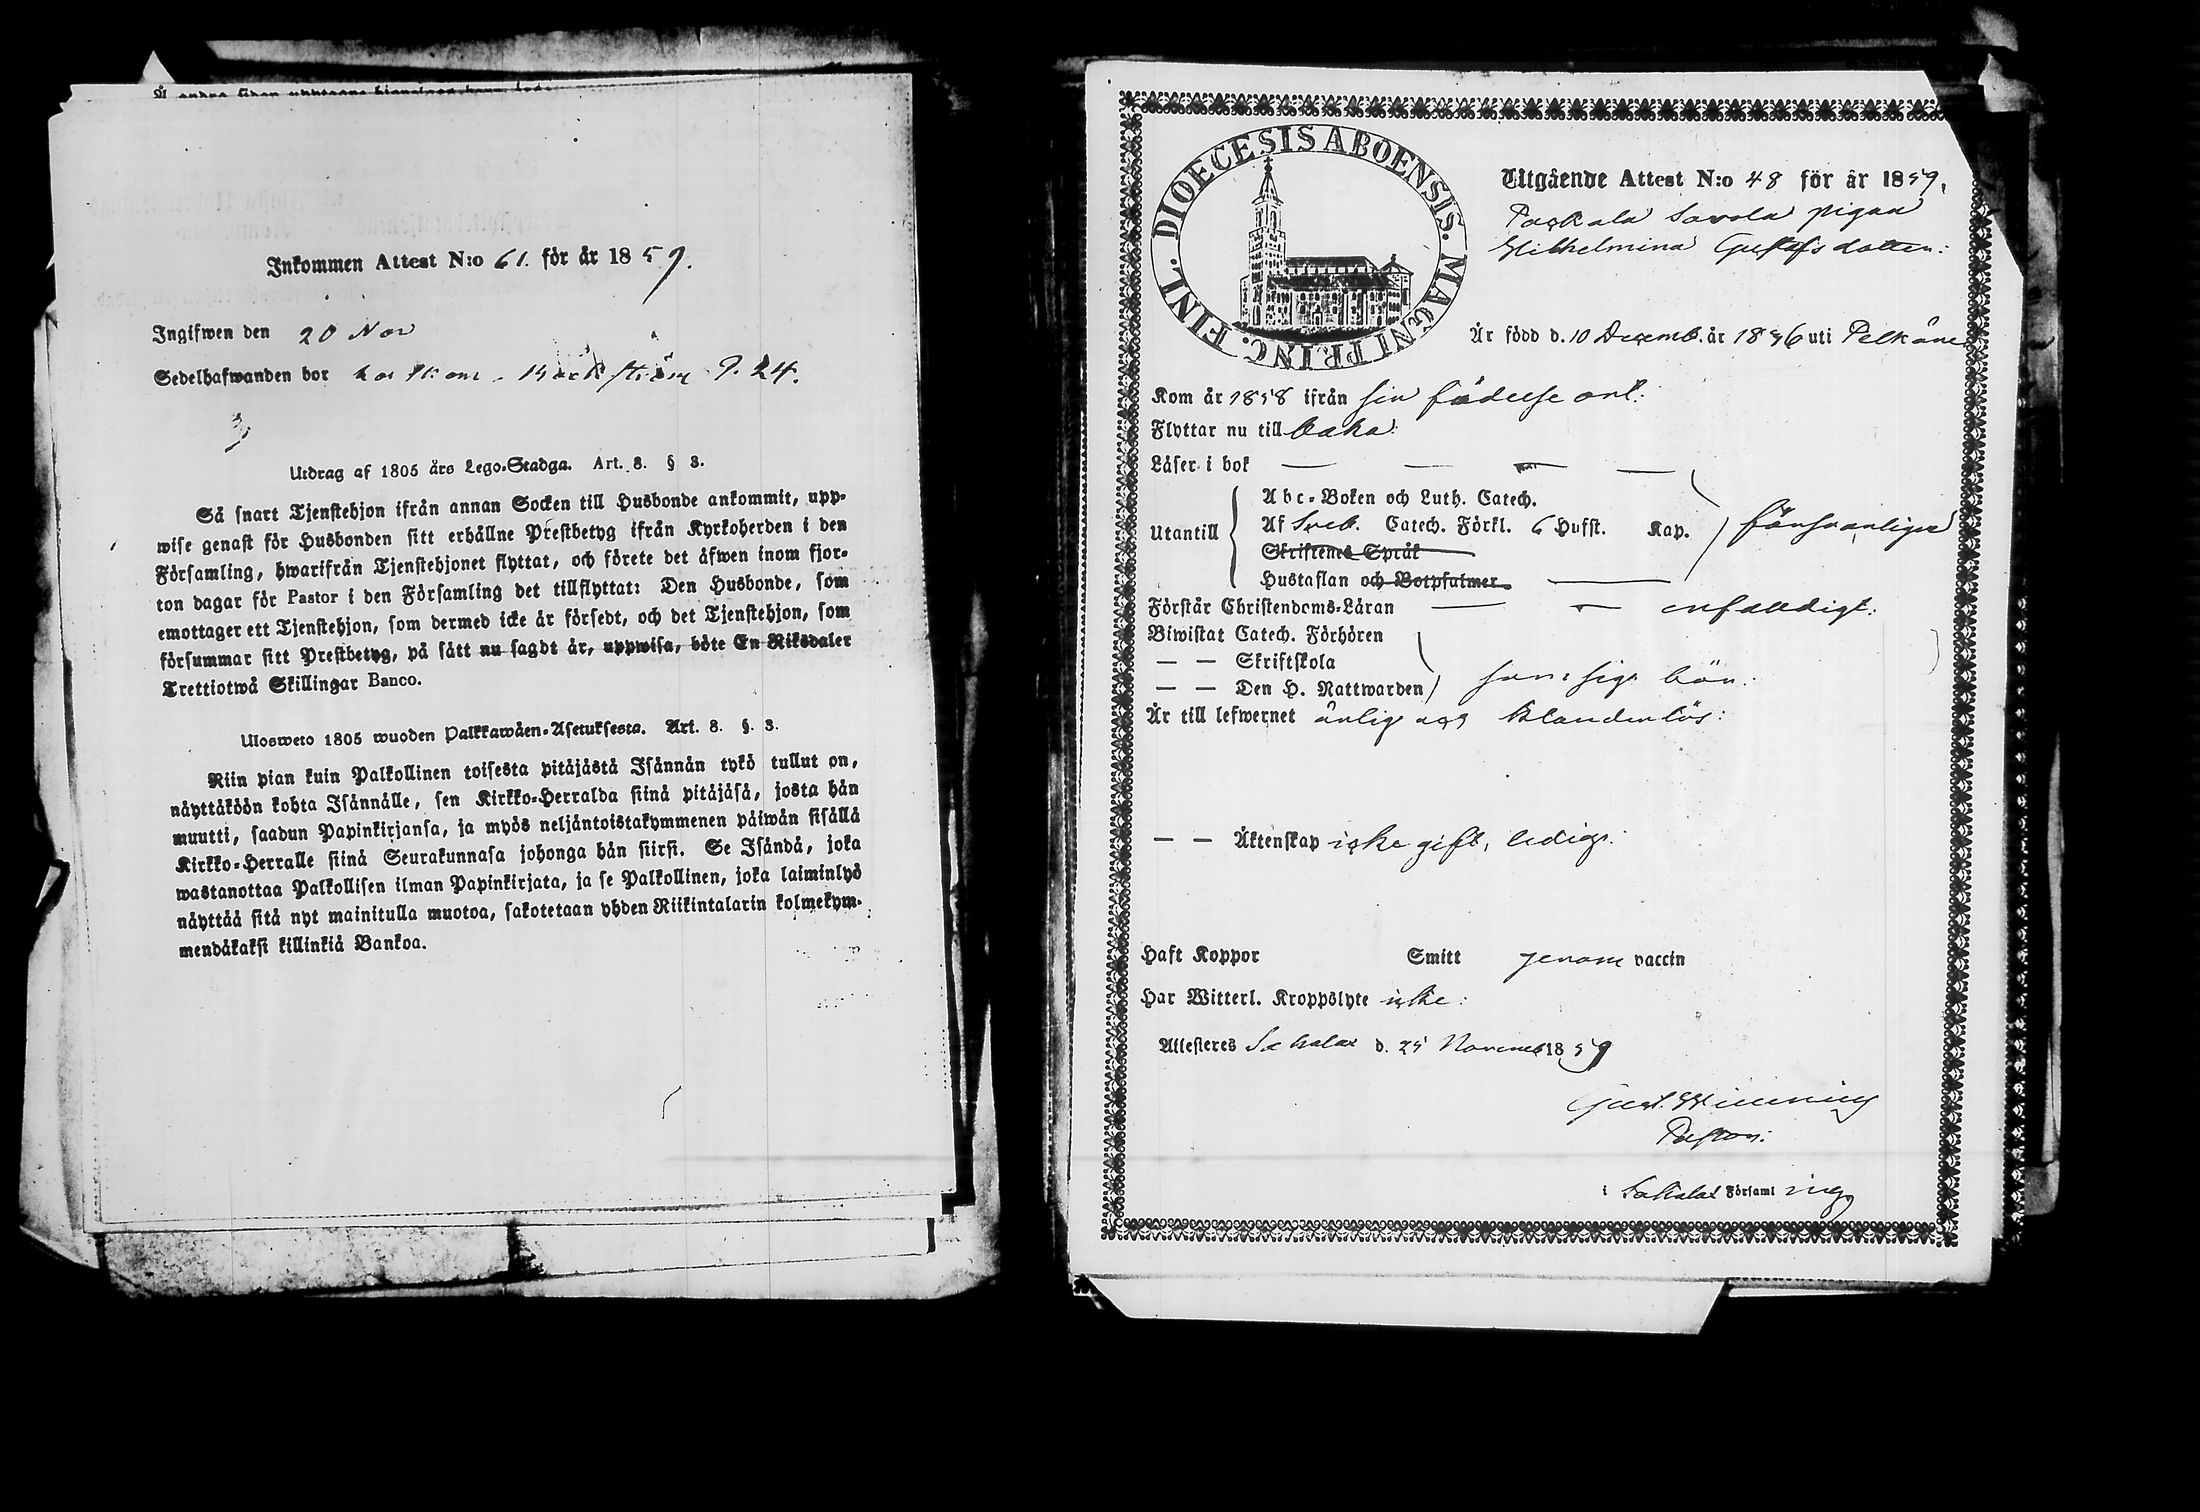 Inkommen Attest N:o 61. för år 1859.
Ingifwen den 20 Nov
Sedelhafwanden bor 9. 24.
Utdrag af 1805 års Lego-Stadga. Art. 8. § 3.
Så snart Tjenstehjon ifrån annan Socken till Husbonde ankommit, upp-
wise genast för Husbonden sitt erhållne Prestbetyg ifrån Kyrkoherden i den
Församling, hwarifrån Tjenstehjonet flyttat, och förete det äfwen inom fjor-
ton dagar för Pastor i den Församling det tillflyttat: Den Husbonde, som
emottager ett Tjenstehjon, som dermed icke är försedt, och det Tjenstehjon, som
försummar sitt Prestbetyg, på sätt nu sagdt är, uppwisa, böte En Riksdaler
Trettiotwå Skillingar Banco.
Ulosweto 1805 wuoden Palkkawäen-Asetuksesta. Art. 8. §. 3.
Niin pian kuin Palkollinen toisesta pitäjästä Isännän tykö tullut on,
näyttäköön kohta Isännälle, sen Kirkko-Herralda siinä pitäjäsä, josta hän
muutti, saadun Papinkirjansa, ja myös neljäntoistakymmenen päiwän sisällä
Kirkko-Herralle siinä Seurakunnasa johonga hän siirsi. Se Isändä, joka
wastanottaa Palkollisen ilman Papinkirjata, ja se Palkollinen, joka laiminlyö
näyttää sitä nyt mainitulla muotoa, sakotetaan yhden Riikintalarin kolmekym-
mendäkaksi killinkiä Bankoa.
DIOECESIS ABOENSIS. MAGNI PRINC. FINL.
Utgående Attest N:o 48 för år 1859.
Savola pigan
Wilhelmina Gustafsdotter:
Är född d. 10 Decemb. år 1836 uti Pelkäne
Kom år 1858 ifrån sin födelse ort:
Flyttar nu till baka:
Läser i bok — — — —
Utantill
Abc-Boken och Luth. Catech.
Af Sveb. Catech. Förkl. 6 Hufst. Kap. försvarligen
Skriftenes Språk
Hustaflan och Botpsalmer
Förstår Christendoms-Läran — — enfaldigt:
Biwistat Catech. Förhören
— — Skriftskola
— — Den H. Nattwarden som sig bör.
Är till lefwernet ärlig och klanderlös:
— — Äktenskap icke gift, ledig:
Haft Koppor Smitt genom vaccin
Har Witterl. Kroppslyte icke:
Attesteras Sahalax d. 25 Novemb 1859
Pastor:
i Sahalax Församling